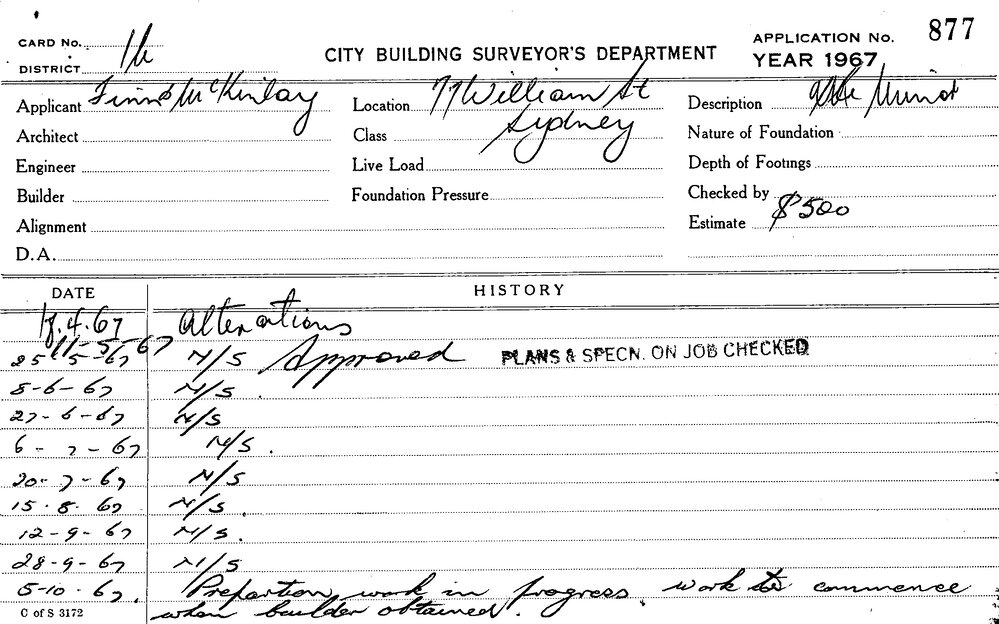 877
CARD No. 16
CITY BUILDING SURVEYOR'S DEPARTMENT
APPLICATION No.
DISTRICT
YEAR 1967
Applicant Finn & McKinlay
Location 77 William St
Sydney
Description Minor
Architect
Class
Nature of Foundation
Engineer
Live Load
Depth of Footings
Builder
Foundation Pressure
Checked by
Alignment
Estimate $500
D.A.
DATE
HISTORY
18.4.67 Alterations
11-5-67 Approved
25-5-67 N/S PLANS & SPECN. ON JOB CHECKED
8-6-67 N/S.
27-6-67 N/S
6-7-67 N/S.
20-7-67 N/S
15.8.67 N/S.
12-9-67 N/S.
28-9-67 N/S
5-10-67. Prepartion work in progress, work to commence
when builder obtained.
C of S 3172